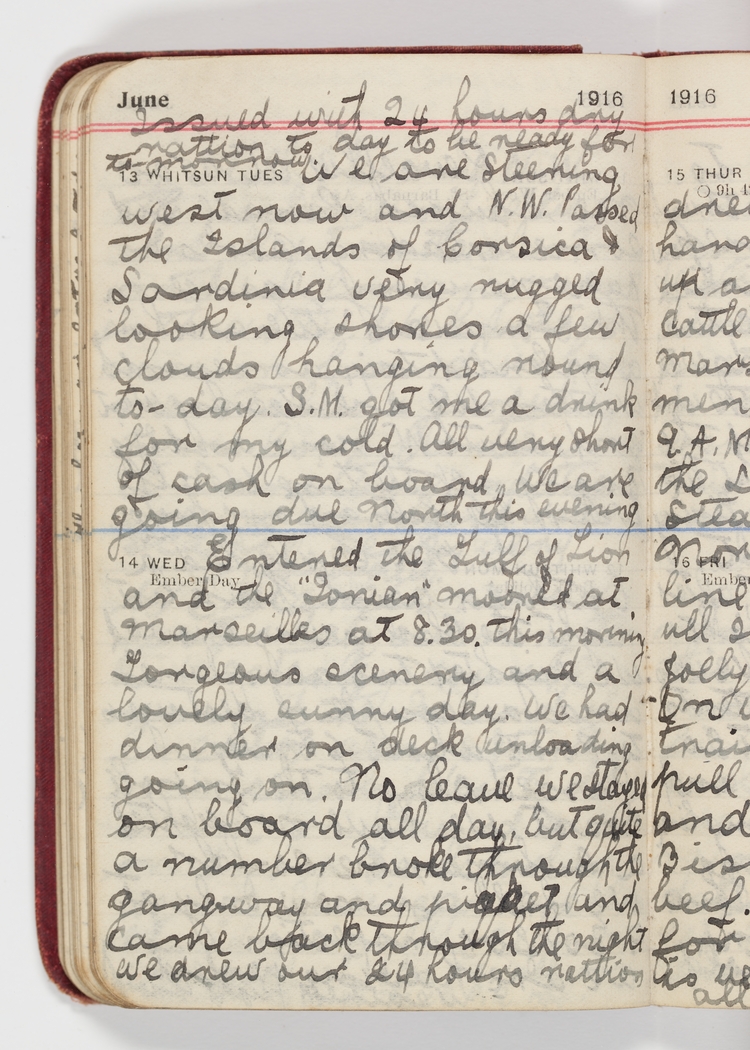 June 1916
Issued with 24 hours dry
rattion to day to be ready for
to-morrow. We are Steering
13 WHITSUN TUES
west now and N.W. Passed
the Islands of Corsica &
Sardinia very rugged
looking shores a few
clouds hanging round
to-day. S.M. got me a drink
for my cold. All very short
of cash on board. We are
going due North this evening
Entered the Gulf of Lion
14 WED
Ember Day
and the "Ionian" moored at
Marseilles at 8.30. this morning
Gorgeous scenery and a
lovely sunny day. We had
dinner on deck unloading
going on. No leave we stayed
on board all day, but quite
a number broke through the
gangway and piquet and
came back through the night
we drew our 24 hours rattion
1916
15 THUR
drew
up a
cattle
men
9. A.M
the
16 FRI
Ember
line
jolly
On
pull
and
beef.
for
all